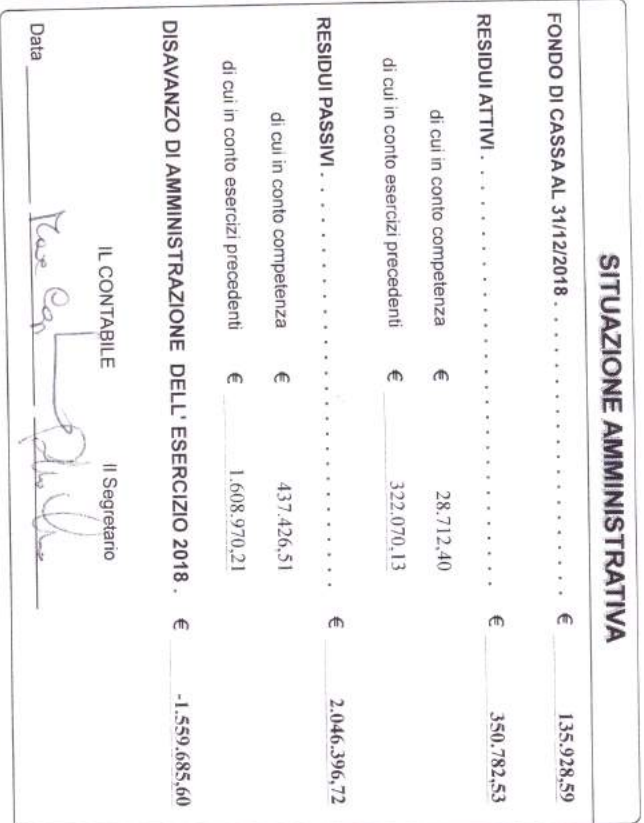 SITUAZIONE AMMINISTRATIVA
FONDO DI CASSA AL 31/12/2018 . . . . . . . . . . . . . . . . . . . . . € 135.928,59
RESIDUI ATTIVI . . . . . . . . . . . . . . . . . . . . . . . . . . . . . . . € 350.782,53
di cui in conto competenza € 28.712,40
di cui in conto esercizi precedenti € 322.070,13
RESIDUI PASSIVI . . . . . . . . . . . . . . . . . . . . . . . . . . . . . . € 2.046.396,72
di cui in conto competenza € 437.426,51
di cui in conto esercizi precedenti € 1.608.970,21
DISAVANZO DI AMMINISTRAZIONE DELL' ESERCIZIO 2018 . € -1.559.685,60
IL CONTABILE Il Segretario
Data